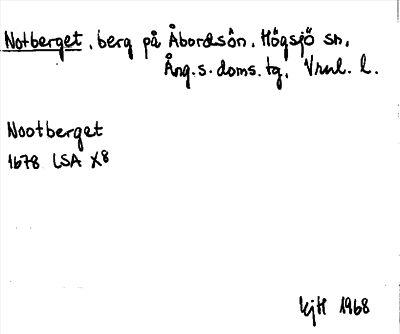 Notberget, berg på Åbordsön. Högsjö sn.
Ång. s. doms. tg. Vrnl. l.
Nootberget
1678 LSA X8
KjH 1968